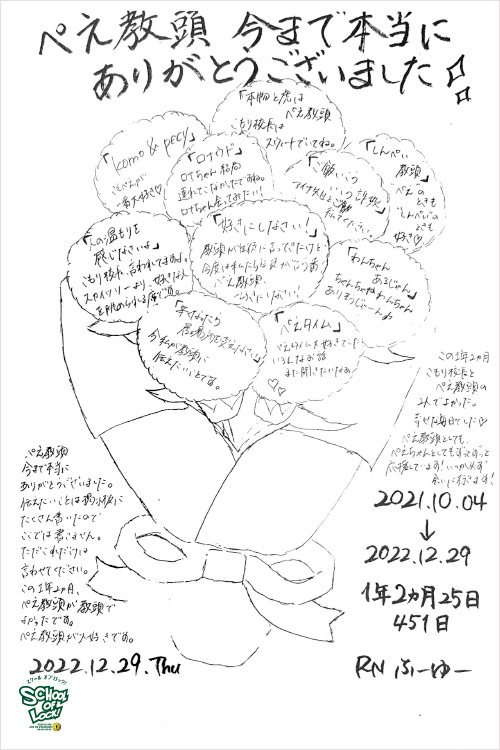 ぺえ教頭 今まで本当に
ありがとうございました!!
「本物と虎は
ぺえ教頭
こもり校長は
スウィートでいてね。
「komo & pecy」
こもぺえが
一番大好き♡
「ロナウド」
ロナちゃん結局
連れてこなかったですね。
ロナちゃん会いたい!
「しんぺい
教頭」
"ぺえ"の
ときも
"しんぺい"の
ときも
好き♡
「好きにしなさい!」
教頭が生徒に言ってきたけど
ぺえ教頭、
「人の温もりを
感じなさいよ」
スカイツリーより、好きな人
を眺められる席で(適)。
「わんちゃん
あるじゃん」
ちゃんちゃんわんちゃん
ありまうじゃーんぬ
「幸せなら
居場所を変えなさい」
今私が教頭に
伝えたいことです。
「ぺえタイム」
ぺえタイム大好きでした
いろんなお話
また聞きたいなぁ
この1年2ヵ月
こもり校長と
ぺえ教頭の
2人でよかった。
幸せな毎日でした♡
ぺえ教頭としても、
ぺえちゃんとしてもずっとずっと
応援しています!いつか必ず
会いに行きます!
2021.10.04
↓
2022.12.29
1年2ヵ月25日
451日
ぺえ教頭
今まで本当に
ありがとうございました。
伝えたいことは掲示板に
たくさん書いたので
ここでは書きません。
ただこれだけは
言わせてください。
この1年2ヵ月、
ぺえ教頭が教頭で
よかったです。
ぺえ教頭が大好きです。
2022.12.29.Thu
RN ふーゆー
スクール オブ ロック!
SCHOOL
OF
LOCK!